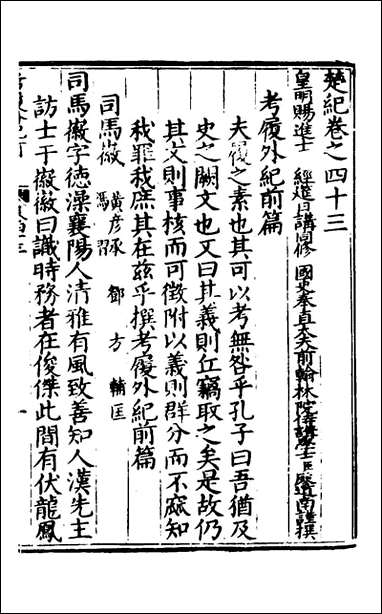 楚紀卷之四十三
皇明賜進士 經筵日講同修 國史奉直大夫前翰林院侍讀學士臣廖道南謹撰
考履外紀前篇
夫履之素也其可以考無咎乎孔子曰吾猶及
史之闕文也又曰其義則丘竊取之矣是故仍
其文則事核而可徵附以義則群分而不窳知
我罪我庶其在茲乎撰考履外紀前篇
司馬徽 黃彥承 馮習 鄧方 輔匡
司馬徽字德澡襄陽人清雅有風致善知人漢先主
訪士于徽徽曰識時務者在俊傑此間有伏龍鳳